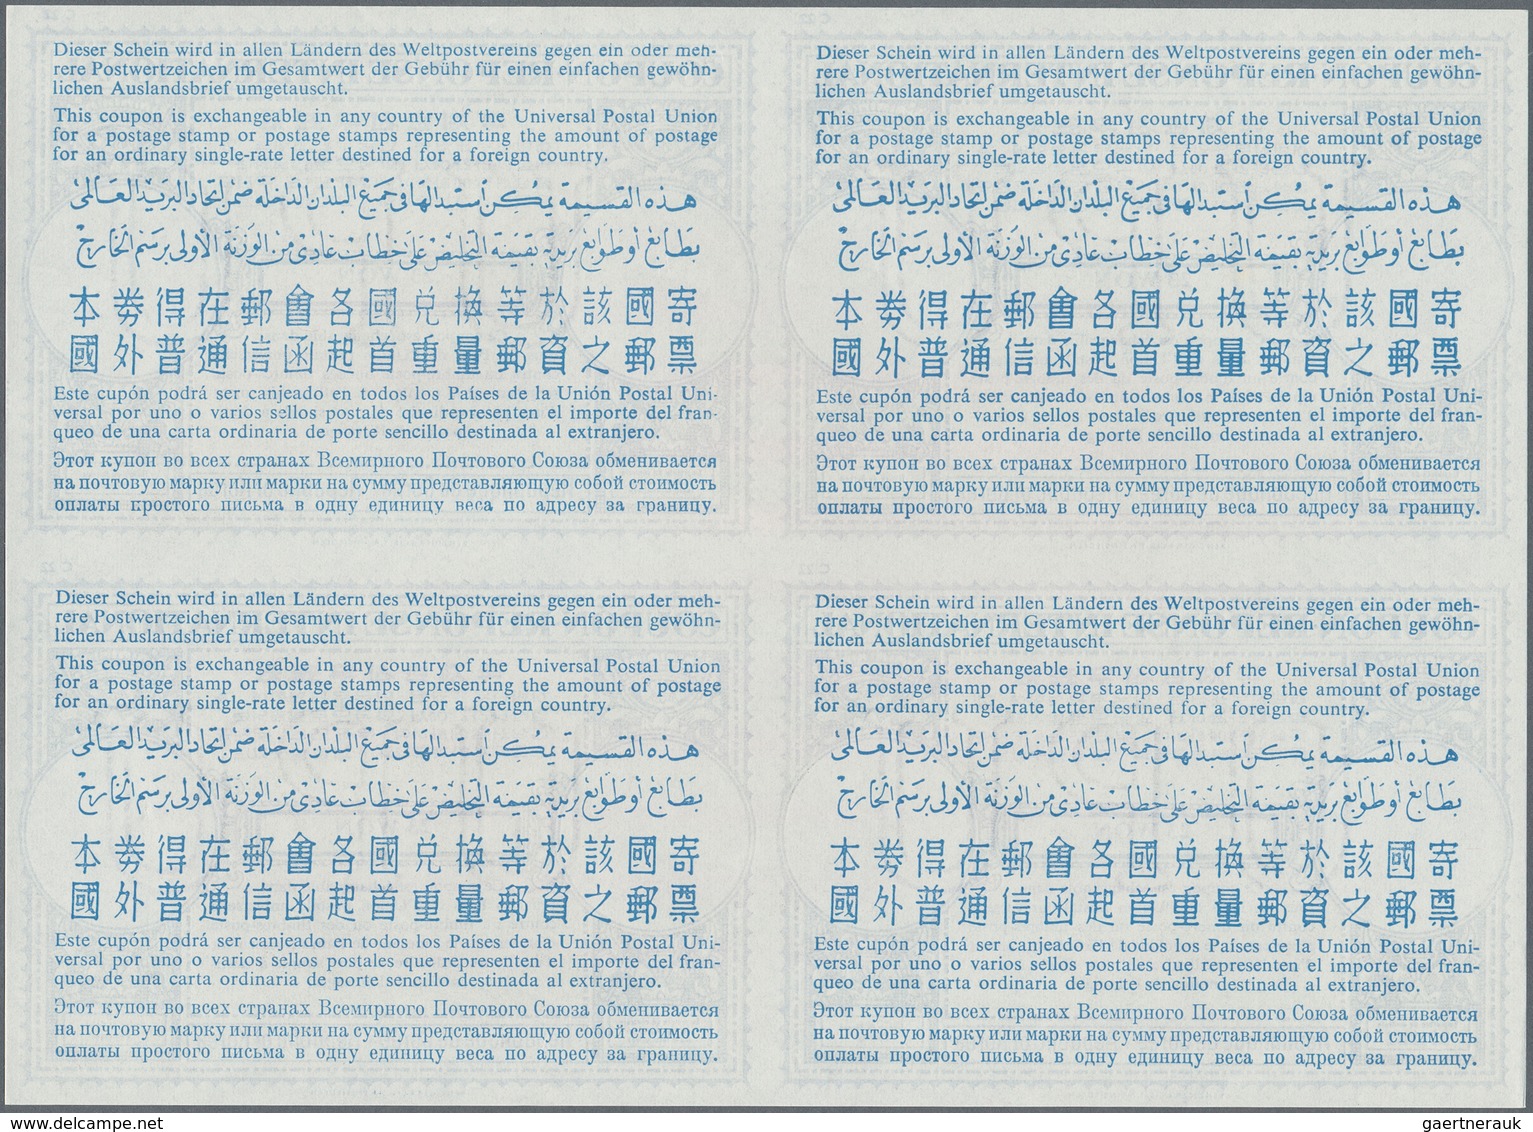 Dieser Schein wird in allen Ländern des Weltpostvereins gegen ein oder meh-
rere Postwertzeichen im Gesamtwert der Gebühr für einen einfachen gewöhn-
lichen Auslandsbrief umgetauscht.
This coupon is exchangeable in any country of the Universal Postal Union
for a postage stamp or postage stamps representing the amount of postage
for an ordinary single-rate letter destined for a foreign country.
هذه القسيمة يمكن استبدالها في جميع البلدان الداخلة ضمن اتحاد البريد العالمى
بطابع أو طوابع بريدية بقيمة التخليص على خطاب عادى من الوزنة الأولى برسم الخارج
本劵得在郵會各國兌換等於該國寄
國外普通信函起首重量郵資之郵票
Este cupón podrá ser canjeado en todos los Países de la Unión Postal Uni-
versal por uno o varios sellos postales que representen el importe del fran-
queo de una carta ordinaria de porte sencillo destinada al extranjero.
Этот купон во всех странах Всемирного Почтового Союза обменивается
на почтовую марку или марки на сумму представляющую собой стоимость
оплаты простого письма в одну единицу веса по адресу за границу.
Dieser Schein wird in allen Ländern des Weltpostvereins gegen ein oder meh-
rere Postwertzeichen im Gesamtwert der Gebühr für einen einfachen gewöhn-
lichen Auslandsbrief umgetauscht.
This coupon is exchangeable in any country of the Universal Postal Union
for a postage stamp or postage stamps representing the amount of postage
for an ordinary single-rate letter destined for a foreign country.
هذه القسيمة يمكن استبدالها في جميع البلدان الداخلة ضمن اتحاد البريد العالمى
بطابع أو طوابع بريدية بقيمة التخليص على خطاب عادى من الوزنة الأولى برسم الخارج
本劵得在郵會各國兌換等於該國寄
國外普通信函起首重量郵資之郵票
Este cupón podrá ser canjeado en todos los Países de la Unión Postal Uni-
versal por uno o varios sellos postales que representen el importe del fran-
queo de una carta ordinaria de porte sencillo destinada al extranjero.
Этот купон во всех странах Всемирного Почтового Союза обменивается
на почтовую марку или марки на сумму представляющую собой стоимость
оплаты простого письма в одну единицу веса по адресу за границу.
Dieser Schein wird in allen Ländern des Weltpostvereins gegen ein oder meh-
rere Postwertzeichen im Gesamtwert der Gebühr für einen einfachen gewöhn-
lichen Auslandsbrief umgetauscht.
This coupon is exchangeable in any country of the Universal Postal Union
for a postage stamp or postage stamps representing the amount of postage
for an ordinary single-rate letter destined for a foreign country.
هذه القسيمة يمكن استبدالها في جميع البلدان الداخلة ضمن اتحاد البريد العالمى
بطابع أو طوابع بريدية بقيمة التخليص على خطاب عادى من الوزنة الأولى برسم الخارج
本劵得在郵會各國兌換等於該國寄
國外普通信函起首重量郵資之郵票
Este cupón podrá ser canjeado en todos los Países de la Unión Postal Uni-
versal por uno o varios sellos postales que representen el importe del fran-
queo de una carta ordinaria de porte sencillo destinada al extranjero.
Этот купон во всех странах Всемирного Почтового Союза обменивается
на почтовую марку или марки на сумму представляющую собой стоимость
оплаты простого письма в одну единицу веса по адресу за границу.
Dieser Schein wird in allen Ländern des Weltpostvereins gegen ein oder meh-
rere Postwertzeichen im Gesamtwert der Gebühr für einen einfachen gewöhn-
lichen Auslandsbrief umgetauscht.
This coupon is exchangeable in any country of the Universal Postal Union
for a postage stamp or postage stamps representing the amount of postage
for an ordinary single-rate letter destined for a foreign country.
هذه القسيمة يمكن استبدالها في جميع البلدان الداخلة ضمن اتحاد البريد العالمى
بطابع أو طوابع بريدية بقيمة التخليص على خطاب عادى من الوزنة الأولى برسم الخارج
本劵得在郵會各國兌換等於該國寄
國外普通信函起首重量郵資之郵票
Este cupón podrá ser canjeado en todos los Países de la Unión Postal Uni-
versal por uno o varios sellos postales que representen el importe del fran-
queo de una carta ordinaria de porte sencillo destinada al extranjero.
Этот купон во всех странах Всемирного Почтового Союза обменивается
на почтовую марку или марки на сумму представляющую собой стоимость
оплаты простого письма в одну единицу веса по адресу за границу.
delcampe.net
gaertnerauk